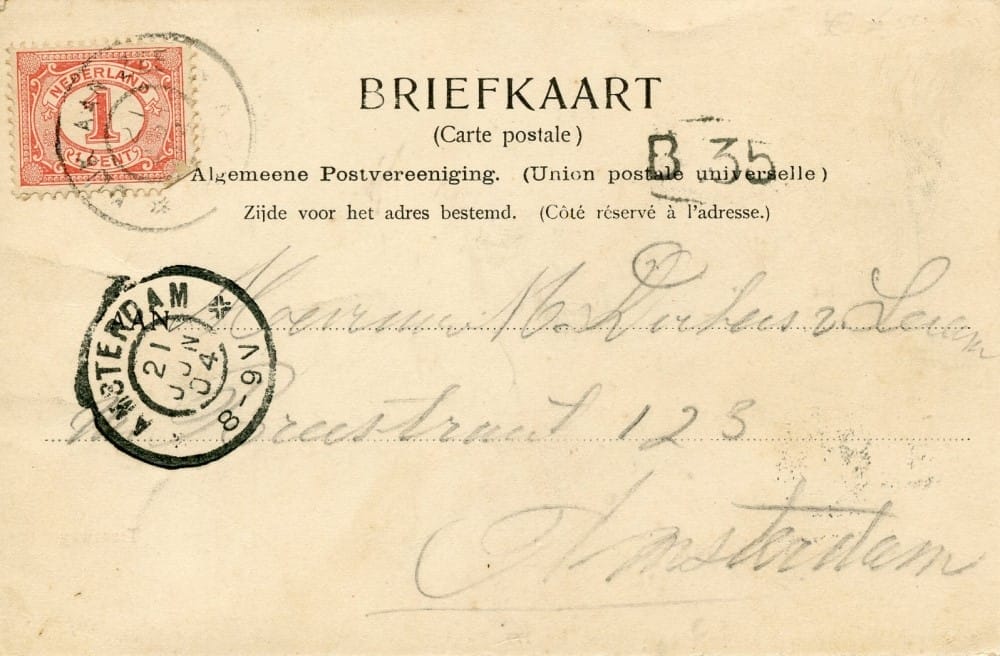 NEDERLAND
1
1 CENT
BRIEFKAART
(Carte postale)
B 35
Algemeene Postvereeniging. (Union postale universelle)
Zijde voor het adres bestemd. (Côté réservé à l'adresse.)
AAN
AMSTERDAM * 8-9V
21 JUN 04
M.
Breestraat 123
Amsterdam